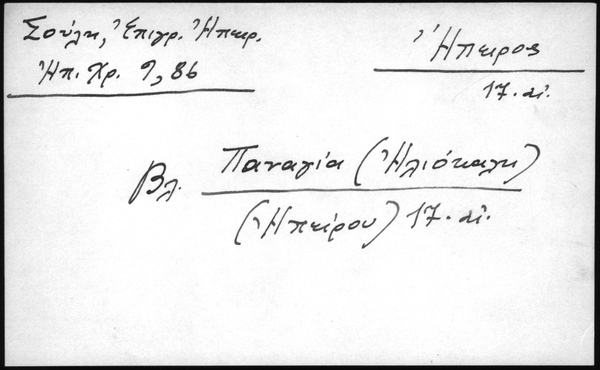 Σούλη, Ἐπιγρ. Ἠπειρ.
Ἠπ. Χρ. 9, 86
Ἤπειρος
17. αἰ.
Βλ. Παναγία (Ἠλιόκαλη)
(Ἠπείρου) 17. αἰ.